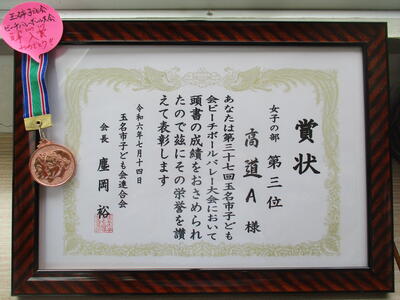 賞状
女子の部 第三位
高道A 様
あなたは第三十七回玉名市子ども
会ビーチボールバレー大会において
頭書の成績をおさめられ
たので茲にその栄誉を讃
えて表彰します
令和六年七月十四日
玉名市子ども会連合会
会長 塵岡 裕
玉名市子ども会
ビーチボールバレー大会